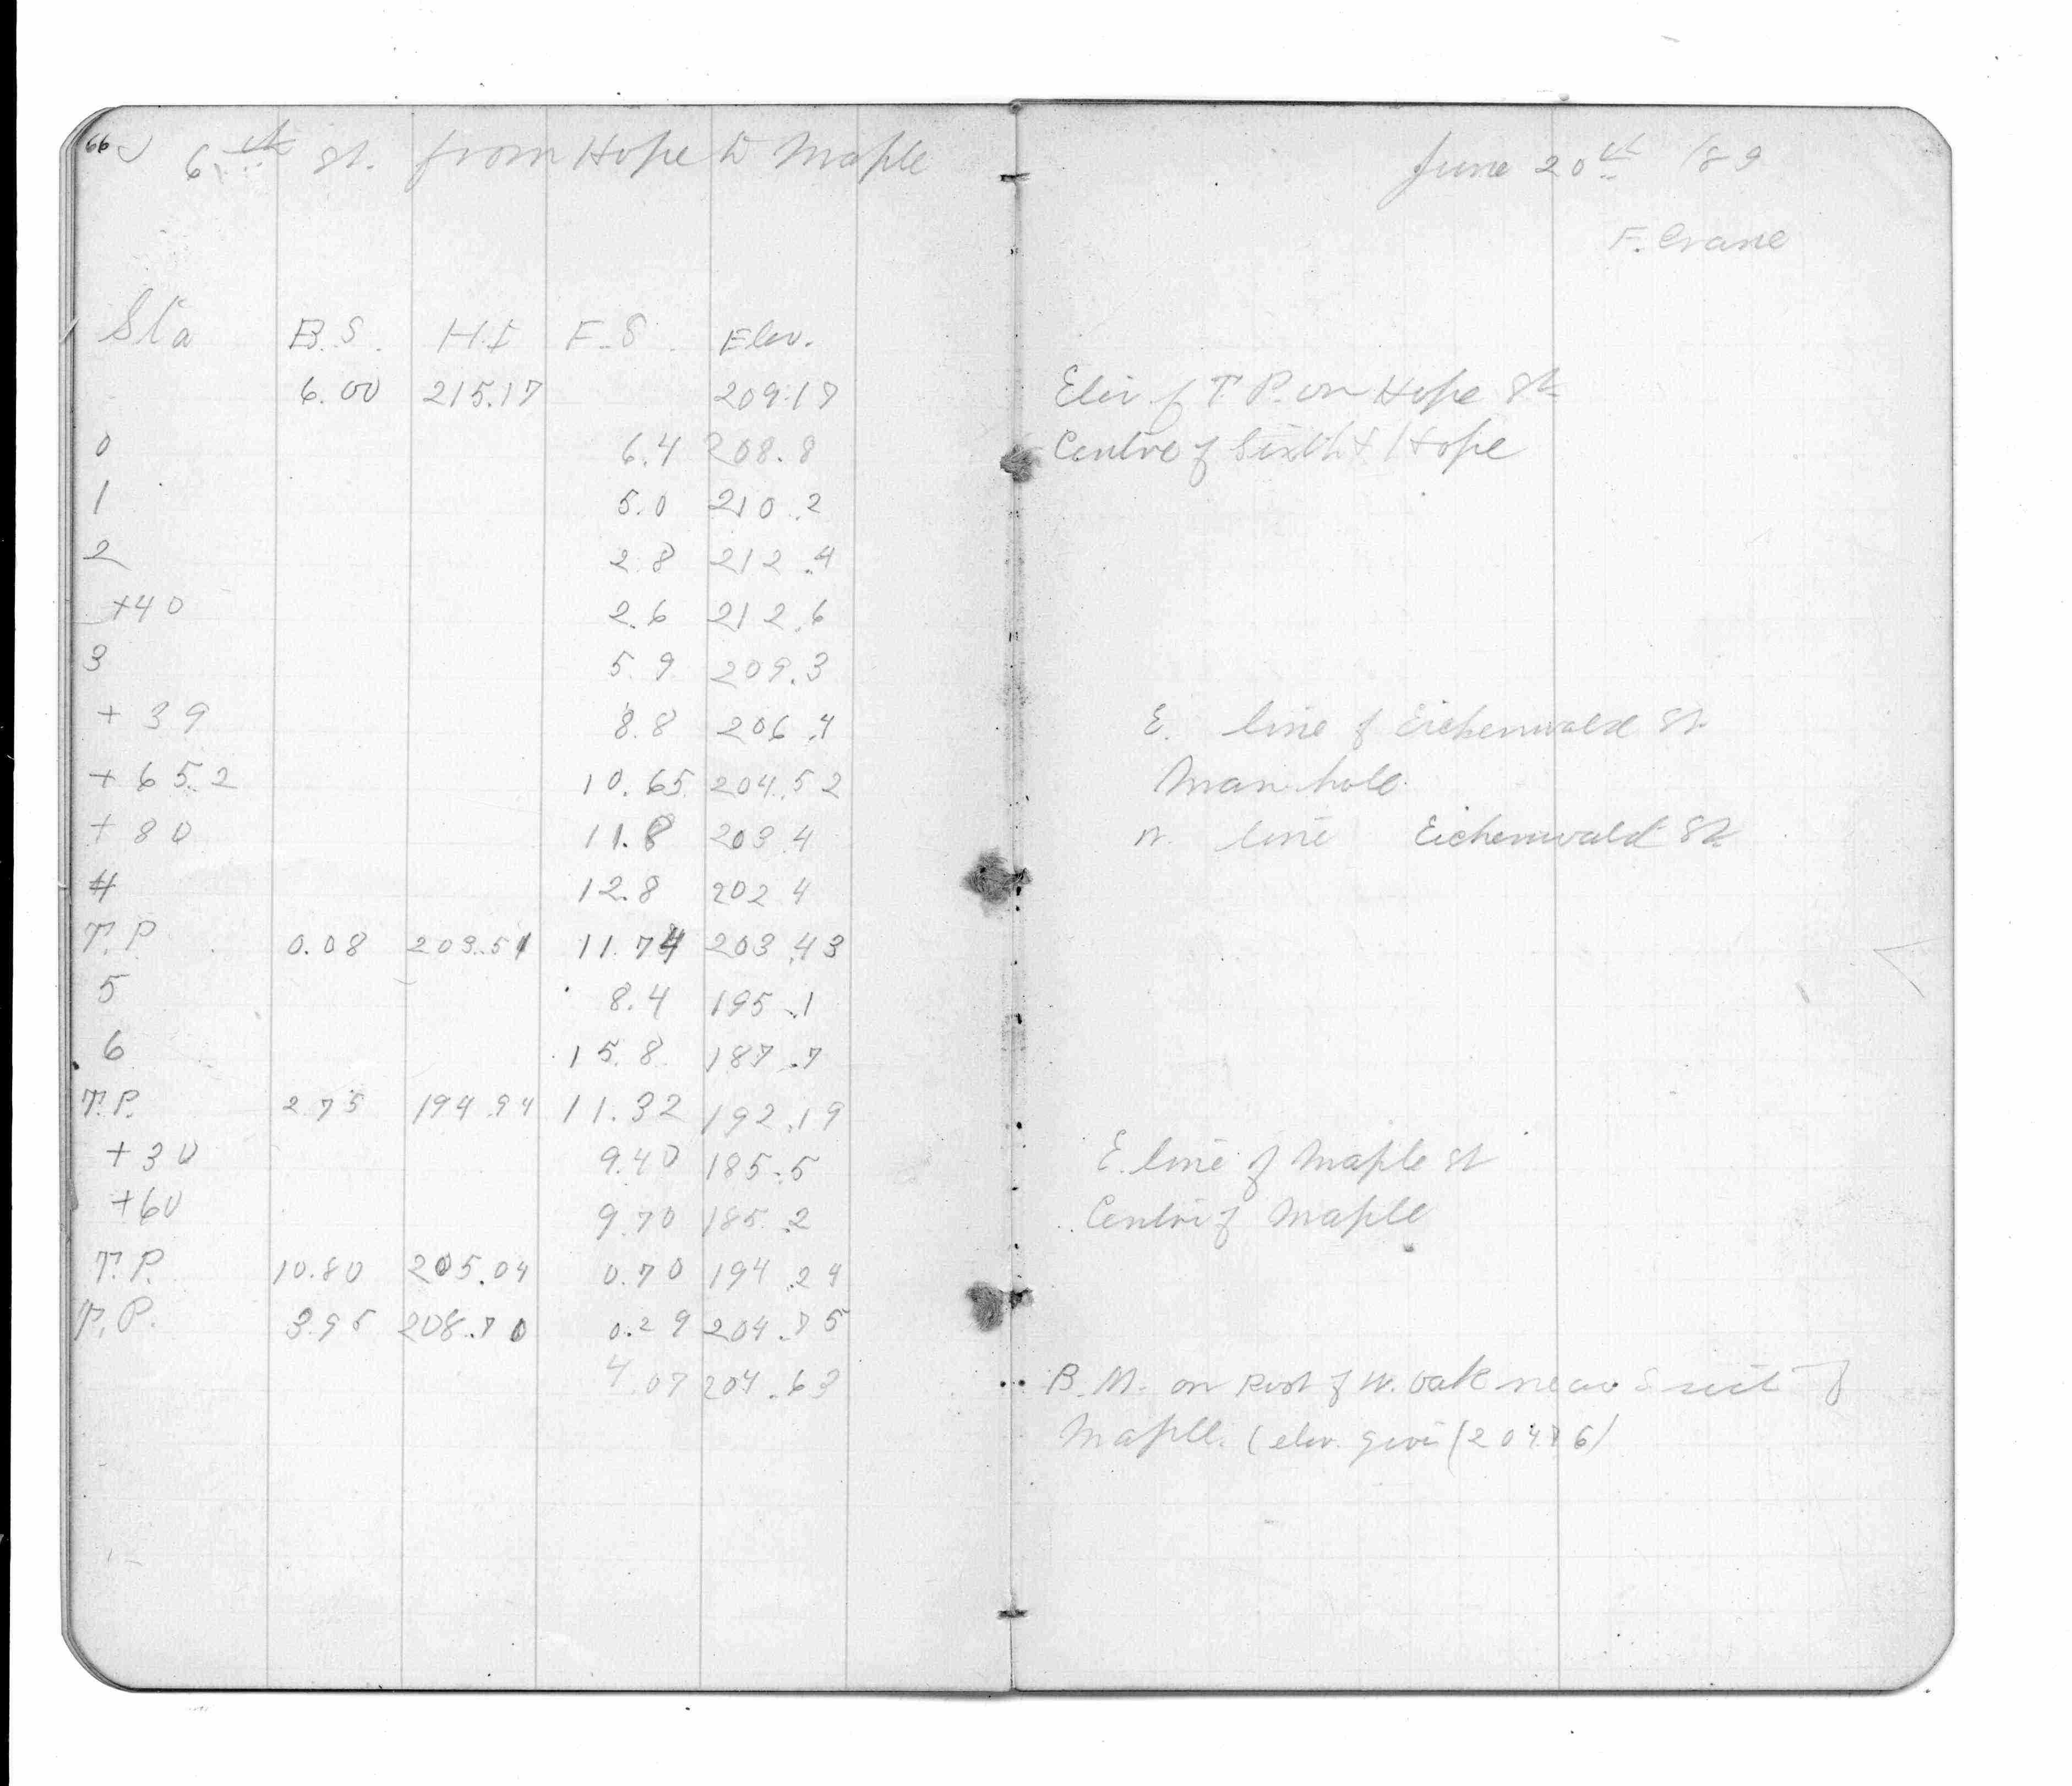 66
6th St. from Hope to Maple
Sta B.S. H.I F.S. Elev.
6.00 215.17 209.17
0 6.4 208.8
1 5.0 210.2
2 2.8 212.4
+40 2.6 212.6
3 5.9 209.3
+39 8.8 206.4
+65.2 10.65 204.52
+80 11.8 203.4
4 12.8 202.4
T.P. 0.08 203.51 11.74 203.43
5 8.4 195.1
6 15.8 187.7
T.P. 2.75 194.94 11.32 192.19
+30 9.40 185.5
+60 9.70 185.2
T.P. 10.80 205.04 0.70 194.24
T.P. 3.95 208.70 0.29 204.75
4.07 204.63
June 20th /89
F. Crane
Elev. of T.P. on Hope St.
Centre of Sixth & Hope
E. line of Eichenwald St.
Man hole
W. line Eichenwald St.
E. line of Maple St
Centre of Maple
B.M. on root of W. oak near of
Maple. (elev. give (204.76)